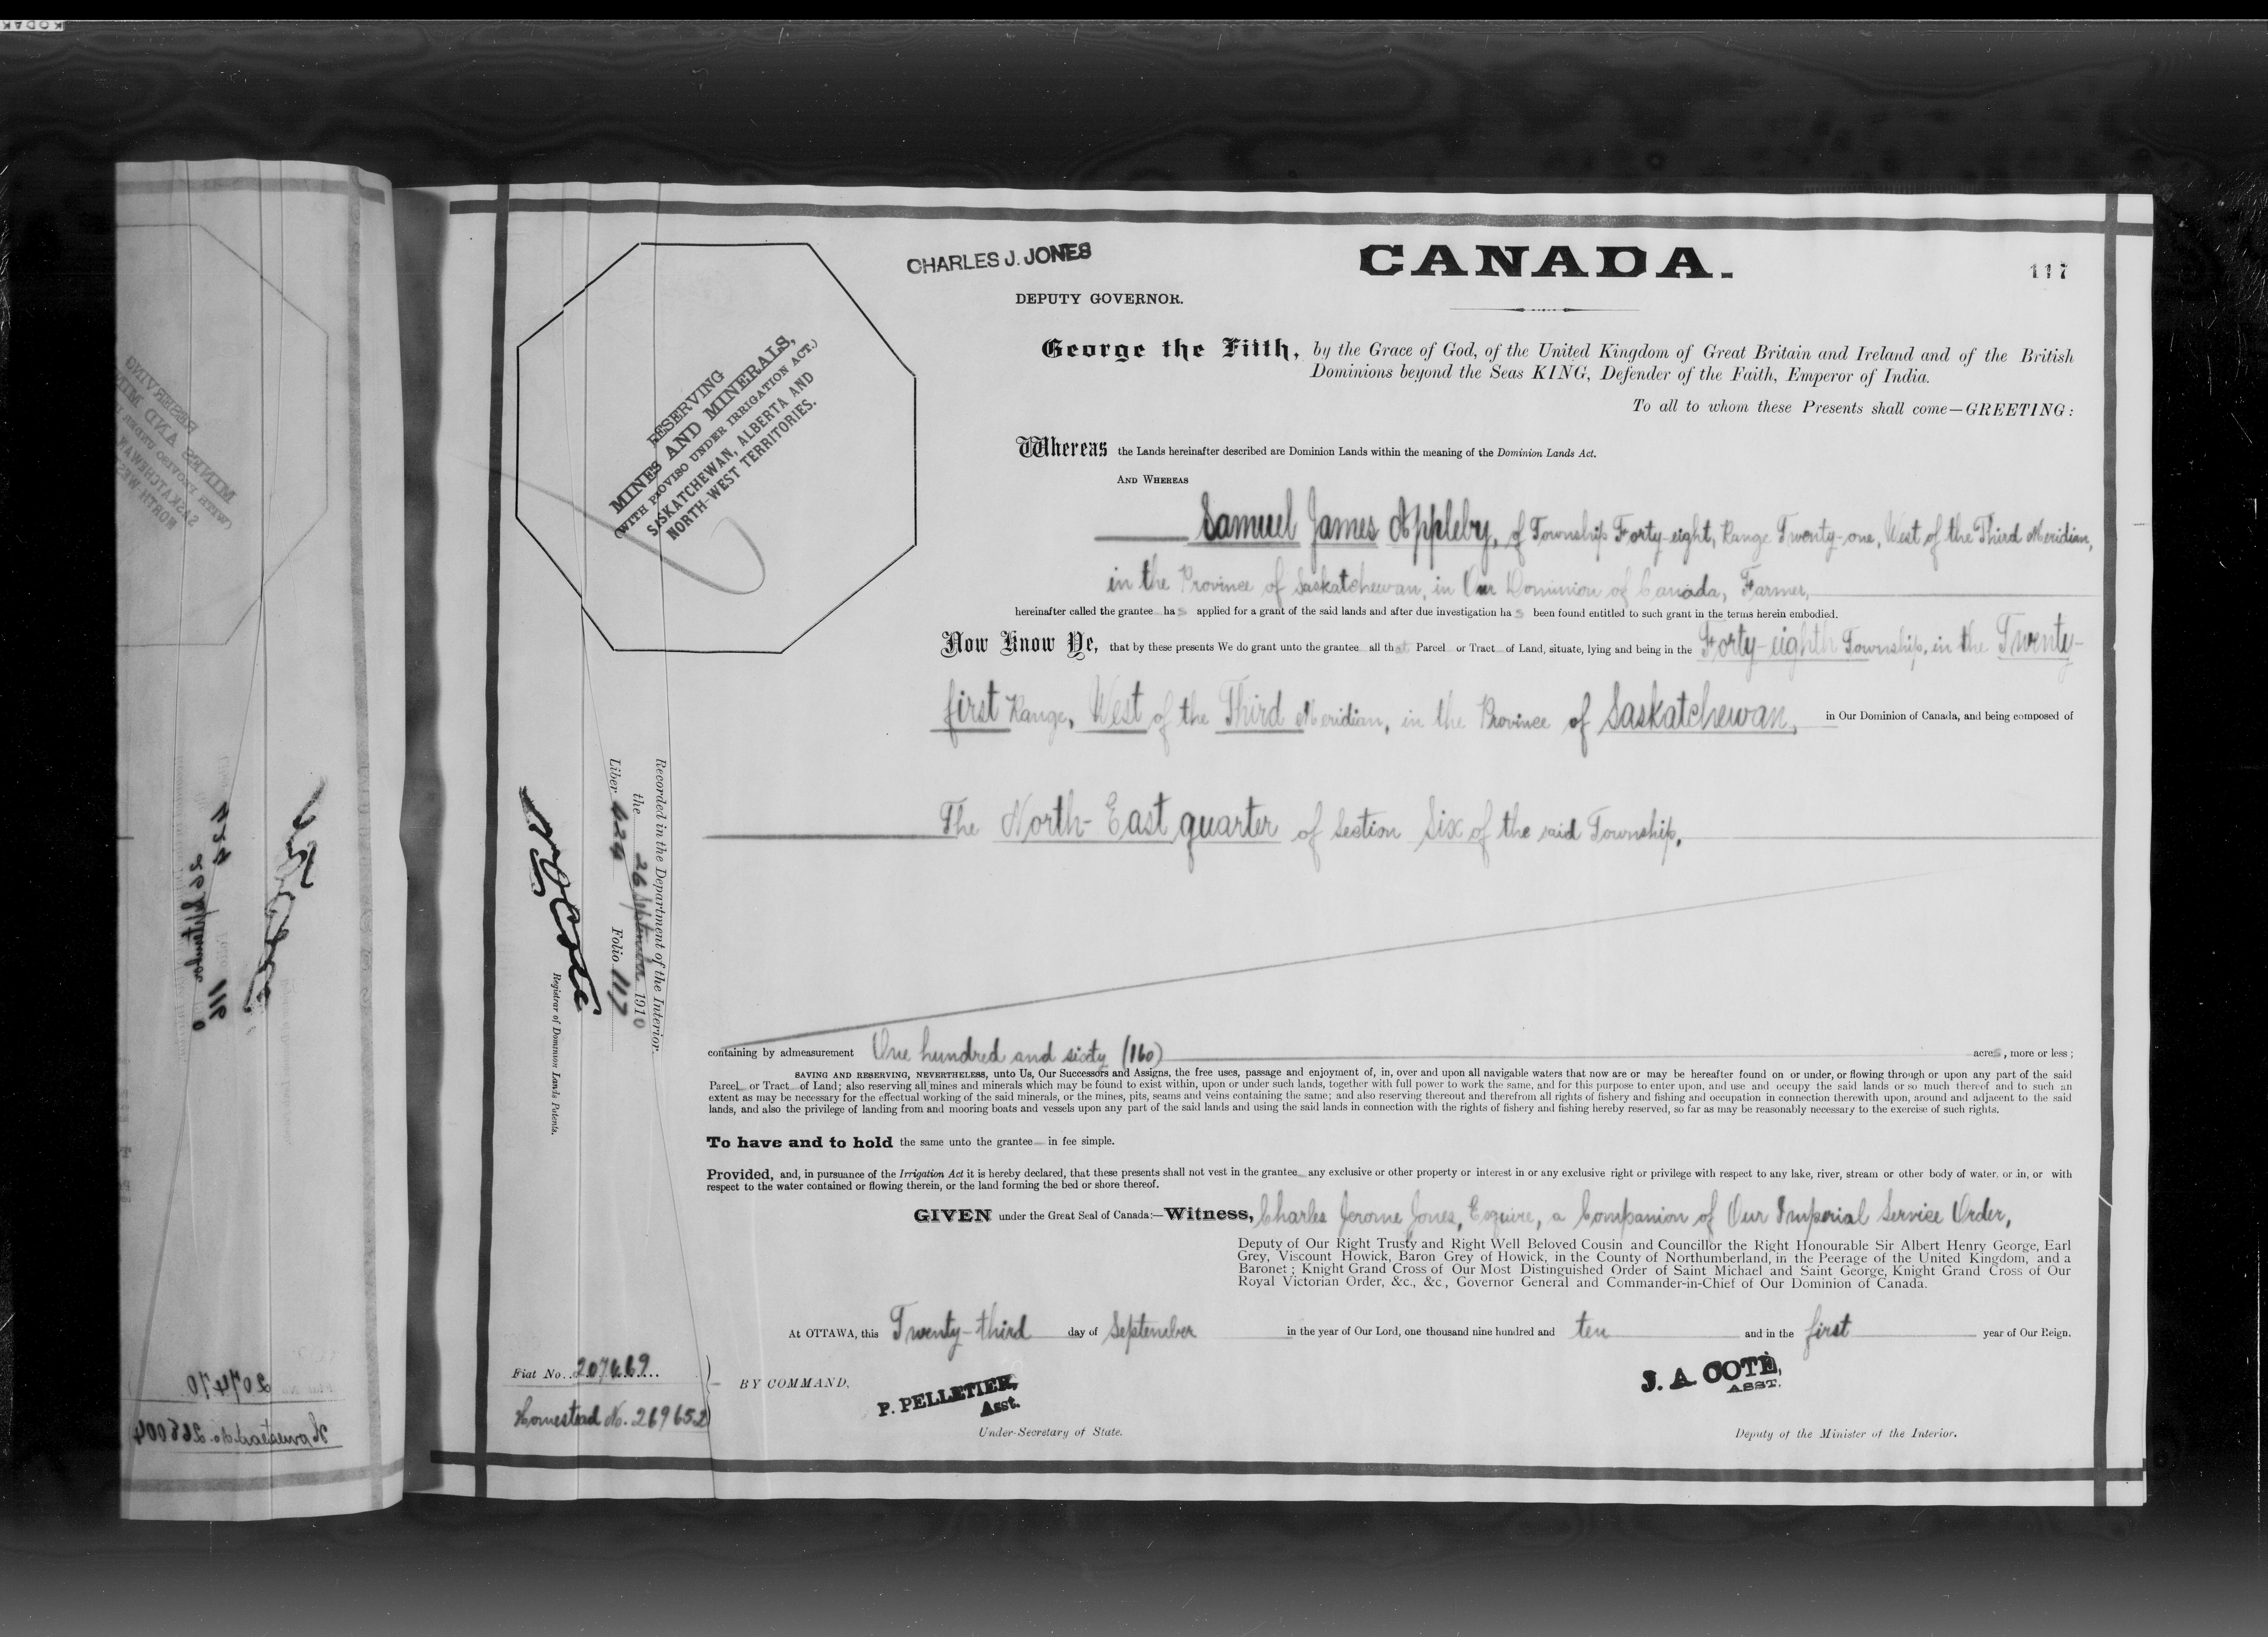 KODAK
CHARLES J. JONES
CANADA.
117
DEPUTY GOVERNOR.
George the Fifth, by the Grace of God, of the United Kingdom of Great Britain and Ireland and of the British
Dominions beyond the Seas KING, Defender of the Faith, Emperor of India.
To all to whom these Presents shall come—GREETING:
RESERVING
MINES AND MINERALS,
(WITH PROVISO UNDER IRRIGATION ACT.)
SASKATCHEWAN, ALBERTA AND
NORTH-WEST TERRITORIES.
Whereas the Lands hereinafter described are Dominion Lands within the meaning of the Dominion Lands Act.
AND WHEREAS
Samuel James Appleby, of Township Forty-eight, Range Twenty-one, West of the Third Meridian,
in the Province of Saskatchewan, in Our Dominion of Canada, Farmer,
hereinafter called the grantee has applied for a grant of the said lands and after due investigation has been found entitled to such grant in the terms herein embodied.
Now Know Ye, that by these presents We do grant unto the grantee all that Parcel or Tract of Land, situate, lying and being in the Forty-eighth Township, in the Twenty-
first Range, West of the Third Meridian, in the Province of Saskatchewan, in Our Dominion of Canada, and being composed of
The North-East quarter of section Six of the said Township.
Recorded in the Department of the Interior.
the 26 September 1910
Liber 424 Folio 117
N O Coté
Registrar of Dominion Lands Patents.
containing by admeasurement One hundred and sixty (160) acres, more or less;
SAVING AND RESERVING, NEVERTHELESS, unto Us, Our Successors and Assigns, the free uses, passage and enjoyment of, in, over and upon all navigable waters that now are or may be hereafter found on or under, or flowing through or upon any part of the said
Parcel or Tract of Land; also reserving all mines and minerals which may be found to exist within, upon or under such lands, together with full power to work the same, and for this purpose to enter upon, and use and occupy the said lands or so much thereof and to such an
extent as may be necessary for the effectual working of the said minerals, or the mines, pits, seams and veins containing the same; and also reserving thereout and therefrom all rights of fishery and fishing and occupation in connection therewith upon, around and adjacent to the said
lands, and also the privilege of landing from and mooring boats and vessels upon any part of the said lands and using the said lands in connection with the rights of fishery and fishing hereby reserved, so far as may be reasonably necessary to the exercise of such rights.
To have and to hold the same unto the grantee in fee simple.
Provided, and, in pursuance of the Irrigation Act it is hereby declared, that these presents shall not vest in the grantee any exclusive or other property or interest in or any exclusive right or privilege with respect to any lake, river, stream or other body of water, or in, or with
respect to the water contained or flowing therein, or the land forming the bed or shore thereof.
GIVEN under the Great Seal of Canada:—Witness, Charles Jerome Jones, Esquire, a Companion of Our Imperial Service Order,
Deputy of Our Right Trusty and Right Well Beloved Cousin and Councillor the Right Honourable Sir Albert Henry George, Earl
Grey, Viscount Howick, Baron Grey of Howick, in the County of Northumberland, in the Peerage of the United Kingdom, and a
Baronet; Knight Grand Cross of Our Most Distinguished Order of Saint Michael and Saint George, Knight Grand Cross of Our
Royal Victorian Order, &c., &c., Governor General and Commander-in-Chief of Our Dominion of Canada.
At OTTAWA, this Twenty-third day of September in the year of Our Lord, one thousand nine hundred and ten and in the first year of Our Reign.
Fiat No. 207469
Homestead No. 269652
BY COMMAND,
P. PELLETIER,
Asst.
Under-Secretary of State.
J. A. COTÉ,
ASST.
Deputy of the Minister of the Interior.
207470
Homestead No. 268004